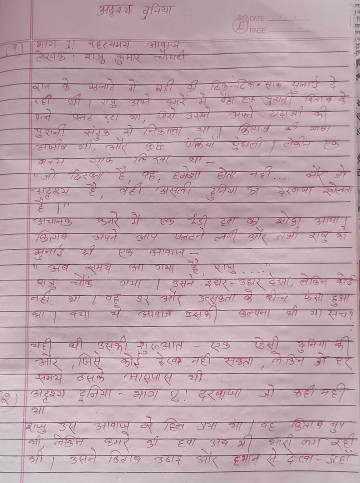 अदृश्य दुनिया
DATE
PAGE
(1) भाग 1: रहस्यमय आवाज
लेखक: राजु कुमार चौधरी
रात के सन्नाटे में घड़ी की टिक-टिक साफ सुनाई दे
रही थी। राजु अपने कमरे में बैठा एक पुरानी किताब के
पन्ने पलट रहा था, जिसे उसने अपने दादाजी की
पुरानी संदूक से निकाला था। किताब की भाषा
अजीब थी, और कुछ पंक्तियाँ धुंधली। लेकिन एक
वाक्य साफ लिखा था—
"जो दिखता है, वह हमेशा होता नहीं.... और जो
अदृश्य है, वही असली दुनिया का दरवाजा खोलता
है।"
अचानक कमरे में एक ठंडी हवा का झोंका आया।
किताब अपने आप पलटने लगी और तभी राजु को
सुनाई दी एक आवाज—
"अब समय आ गया है, राजु...."
राजु चौंक गया। उसने इधर-उधर देखा, लेकिन कोई
नहीं था। वह डर और उत्सुकता के बीच फंसा हुआ
था। क्या ये आवाज उसकी कल्पना थी या सच?
यही थी उसकी शुरुआत - एक ऐसी दुनिया की
ओर, जिसे कोई देख नहीं सकता, लेकिन जो हर
समय उसके आसपास थी
(2) अदृश्य दुनिया - भाग 2: दरवाजा जो कहीं नहीं
था
राजु उस आवाज से हिल गया था। वह किताब चुप
थी, लेकिन कमरे की हवा अब भी भारी लग रही
थी। उसने किताब उठाई और ध्यान से देखा - जहाँ